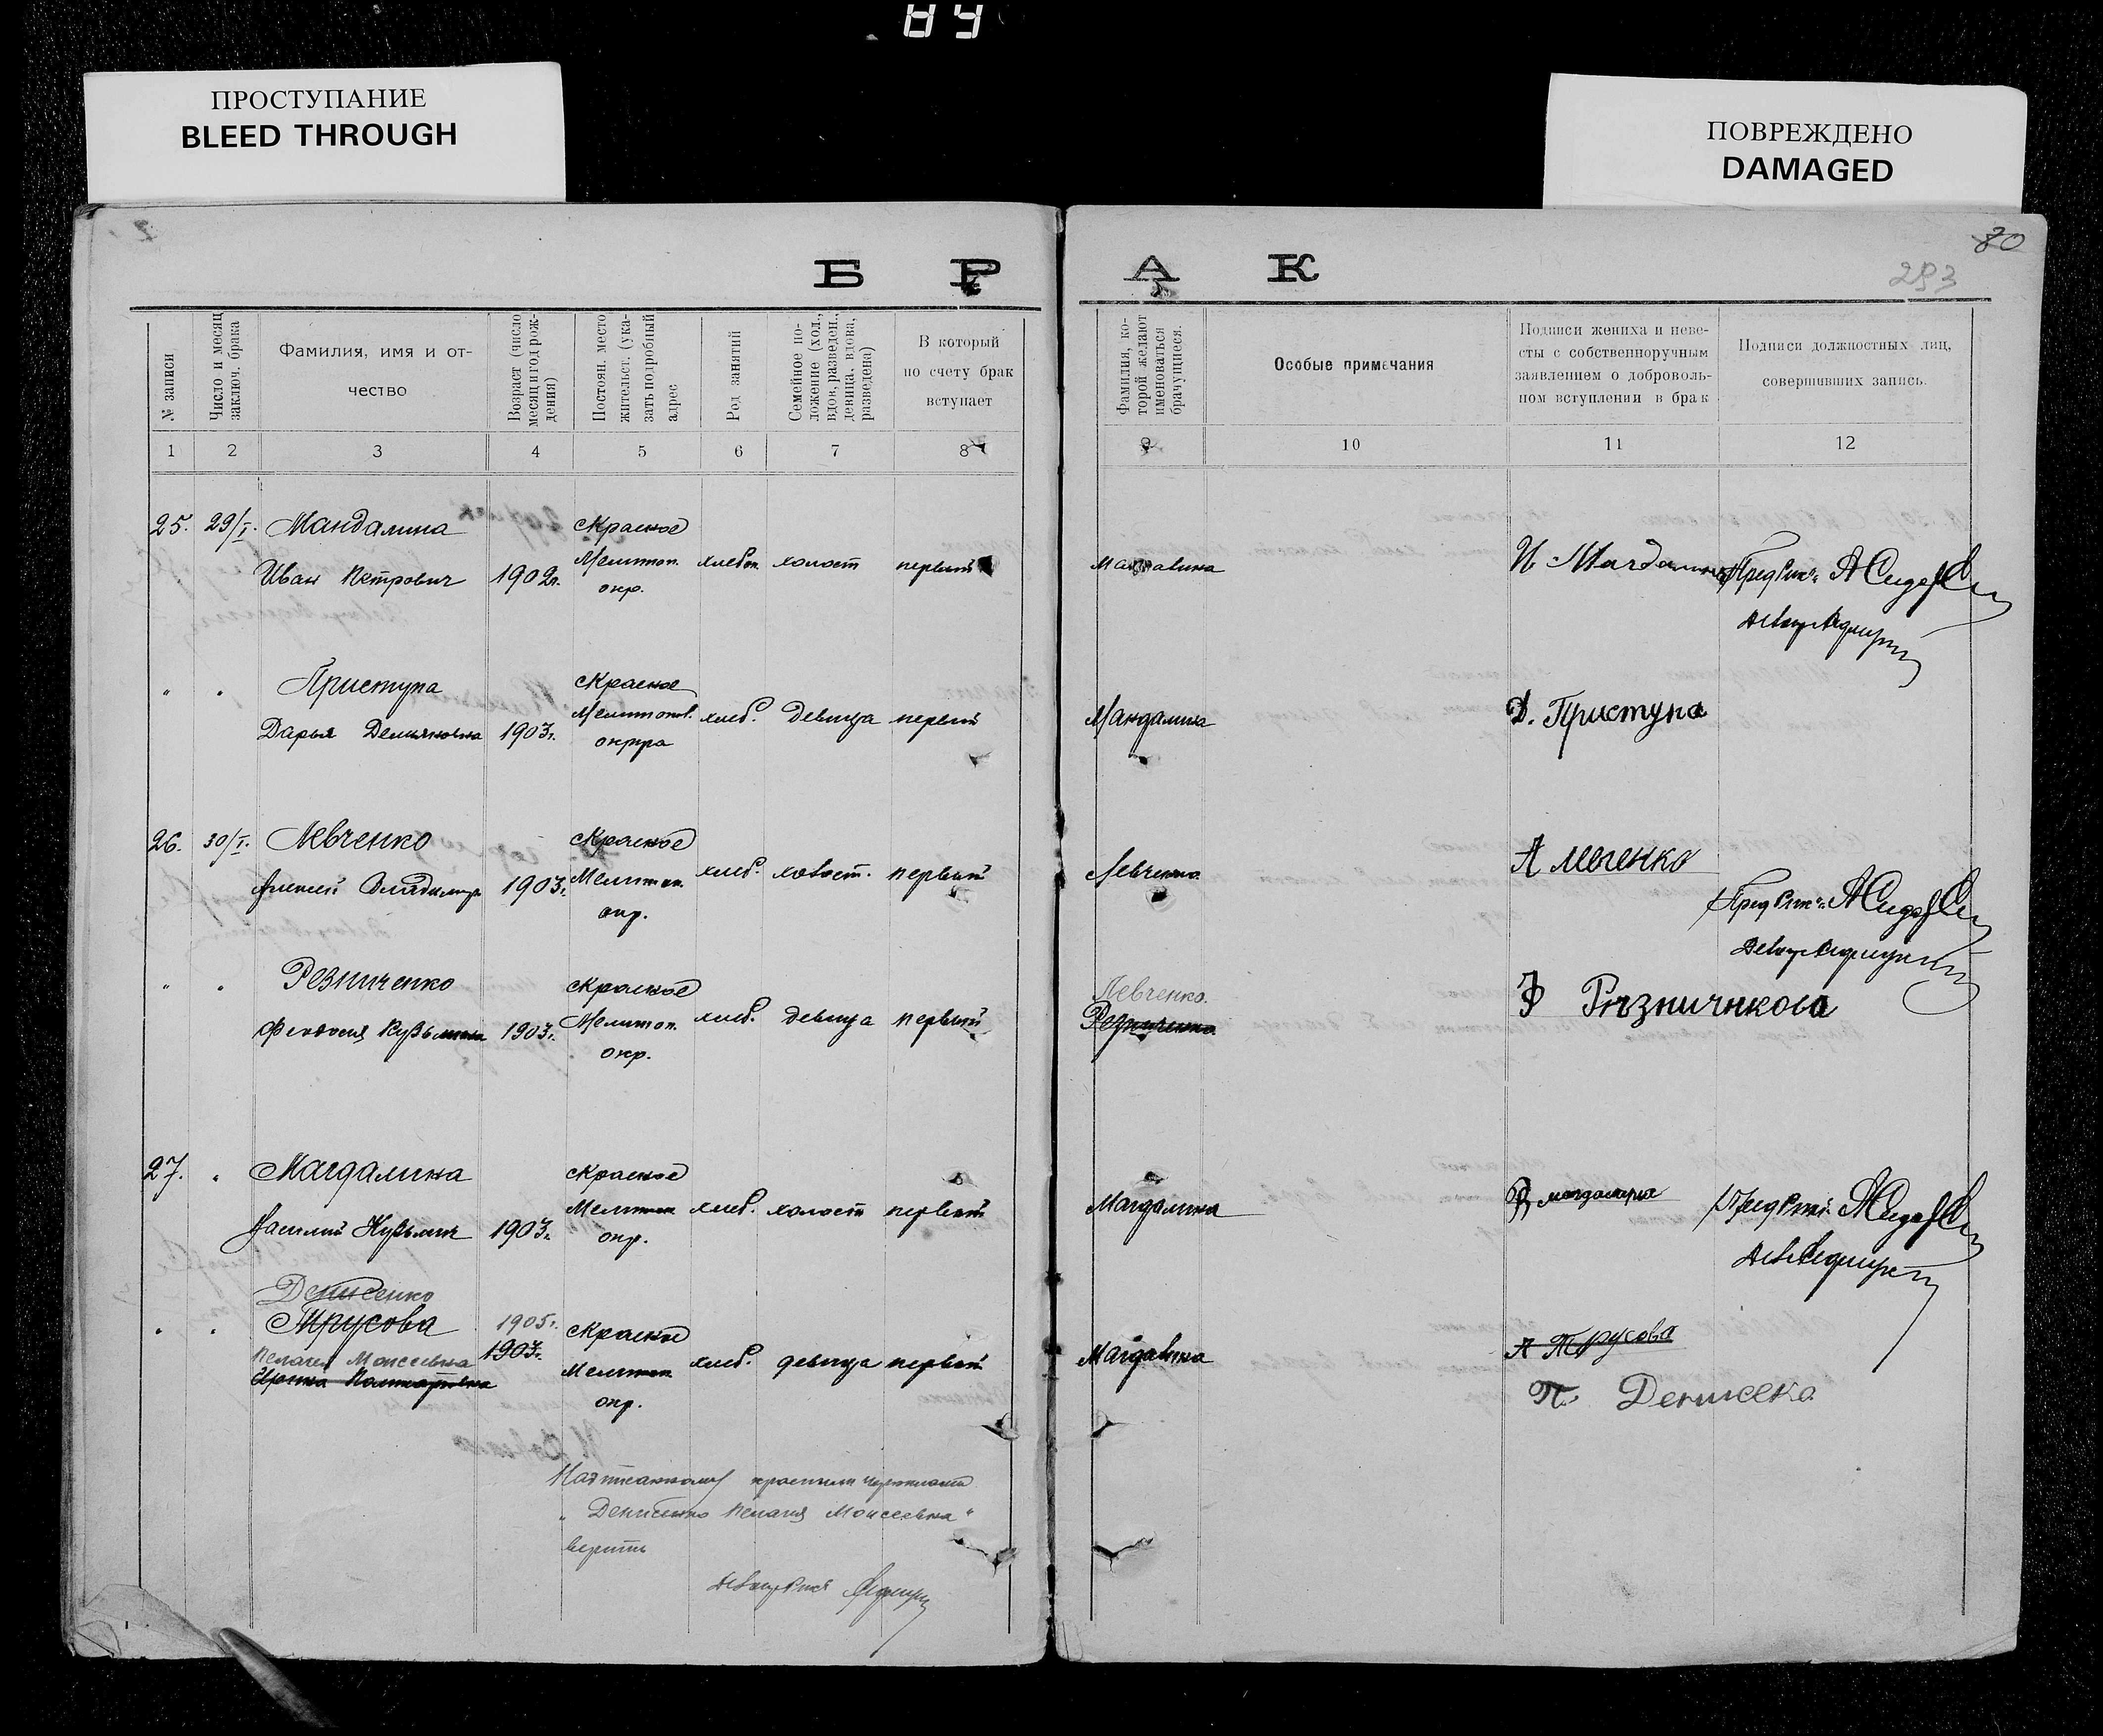 84
ПРОСТУПАНИЕ
BLEED THROUGH
ПОВРЕЖДЕНО
DAMAGED
80
293
Б Р А К
№ записи
Число и месяц
заключ. брака
Фамилия, имя и от-
чество
Возраст (число
месяц и год рож-
дения)
Постоян. место
жительст. (ука-
зать подробный
адрес
Род занятий
Семейное по-
ложение (хол.,
вдов, разведен.,
девица, вдова,
разведена)
В который
по счету брак
вступает
Фамилия, ко-
торой желают
именоваться
брачущиеся.
Особые примечания
Подписи жениха и неве-
сты с собственноручным
заявлением о доброволь-
ном вступлении в брак
Подписи должностных лиц,
совершивших запись.
1 2 3 4 5 6 7 8 9 10 11 12
25. 29/I. Мандалина с Красное
Иван Петрович 1902г. Мелитоп. хлебоп. холост первый
окр.
Магдалина
И. Магдалина
Пред Рик
" " Приступа с Красное
Дарья Демьяновна 1903г. Мелитопол. хлеб. девица первый
округа
Мандалина
Д. Приступа
26. 30/I. Левченко с Красное
Алексей Владимир 1903г. Мелитоп. хлеб. холост. первый
окр.
Левченко
А Левченко
Пред Рик
" " Резниченко с Красное
Феодосия Кузьминична 1903г. Мелитоп. хлеб. девица первый
окр.
Левченко.
Резниченко
Ф
27. " Магдалина с Красное
Василий Кузьмич 1903г. Мелитоп хлеб. холост первый
окр.
Магдалина
В Магдалина
Пред Рик
Денисенко
" " Трусова 1905г. с Красное
Пелагея Моисеевна 1903г. Мелитоп хлеб. девица первый
окр.
Магдалина
А Трусова
П. Денисека
Надписанному красными чернилами
" Денисенко Пелагия Моисеевна "
верить